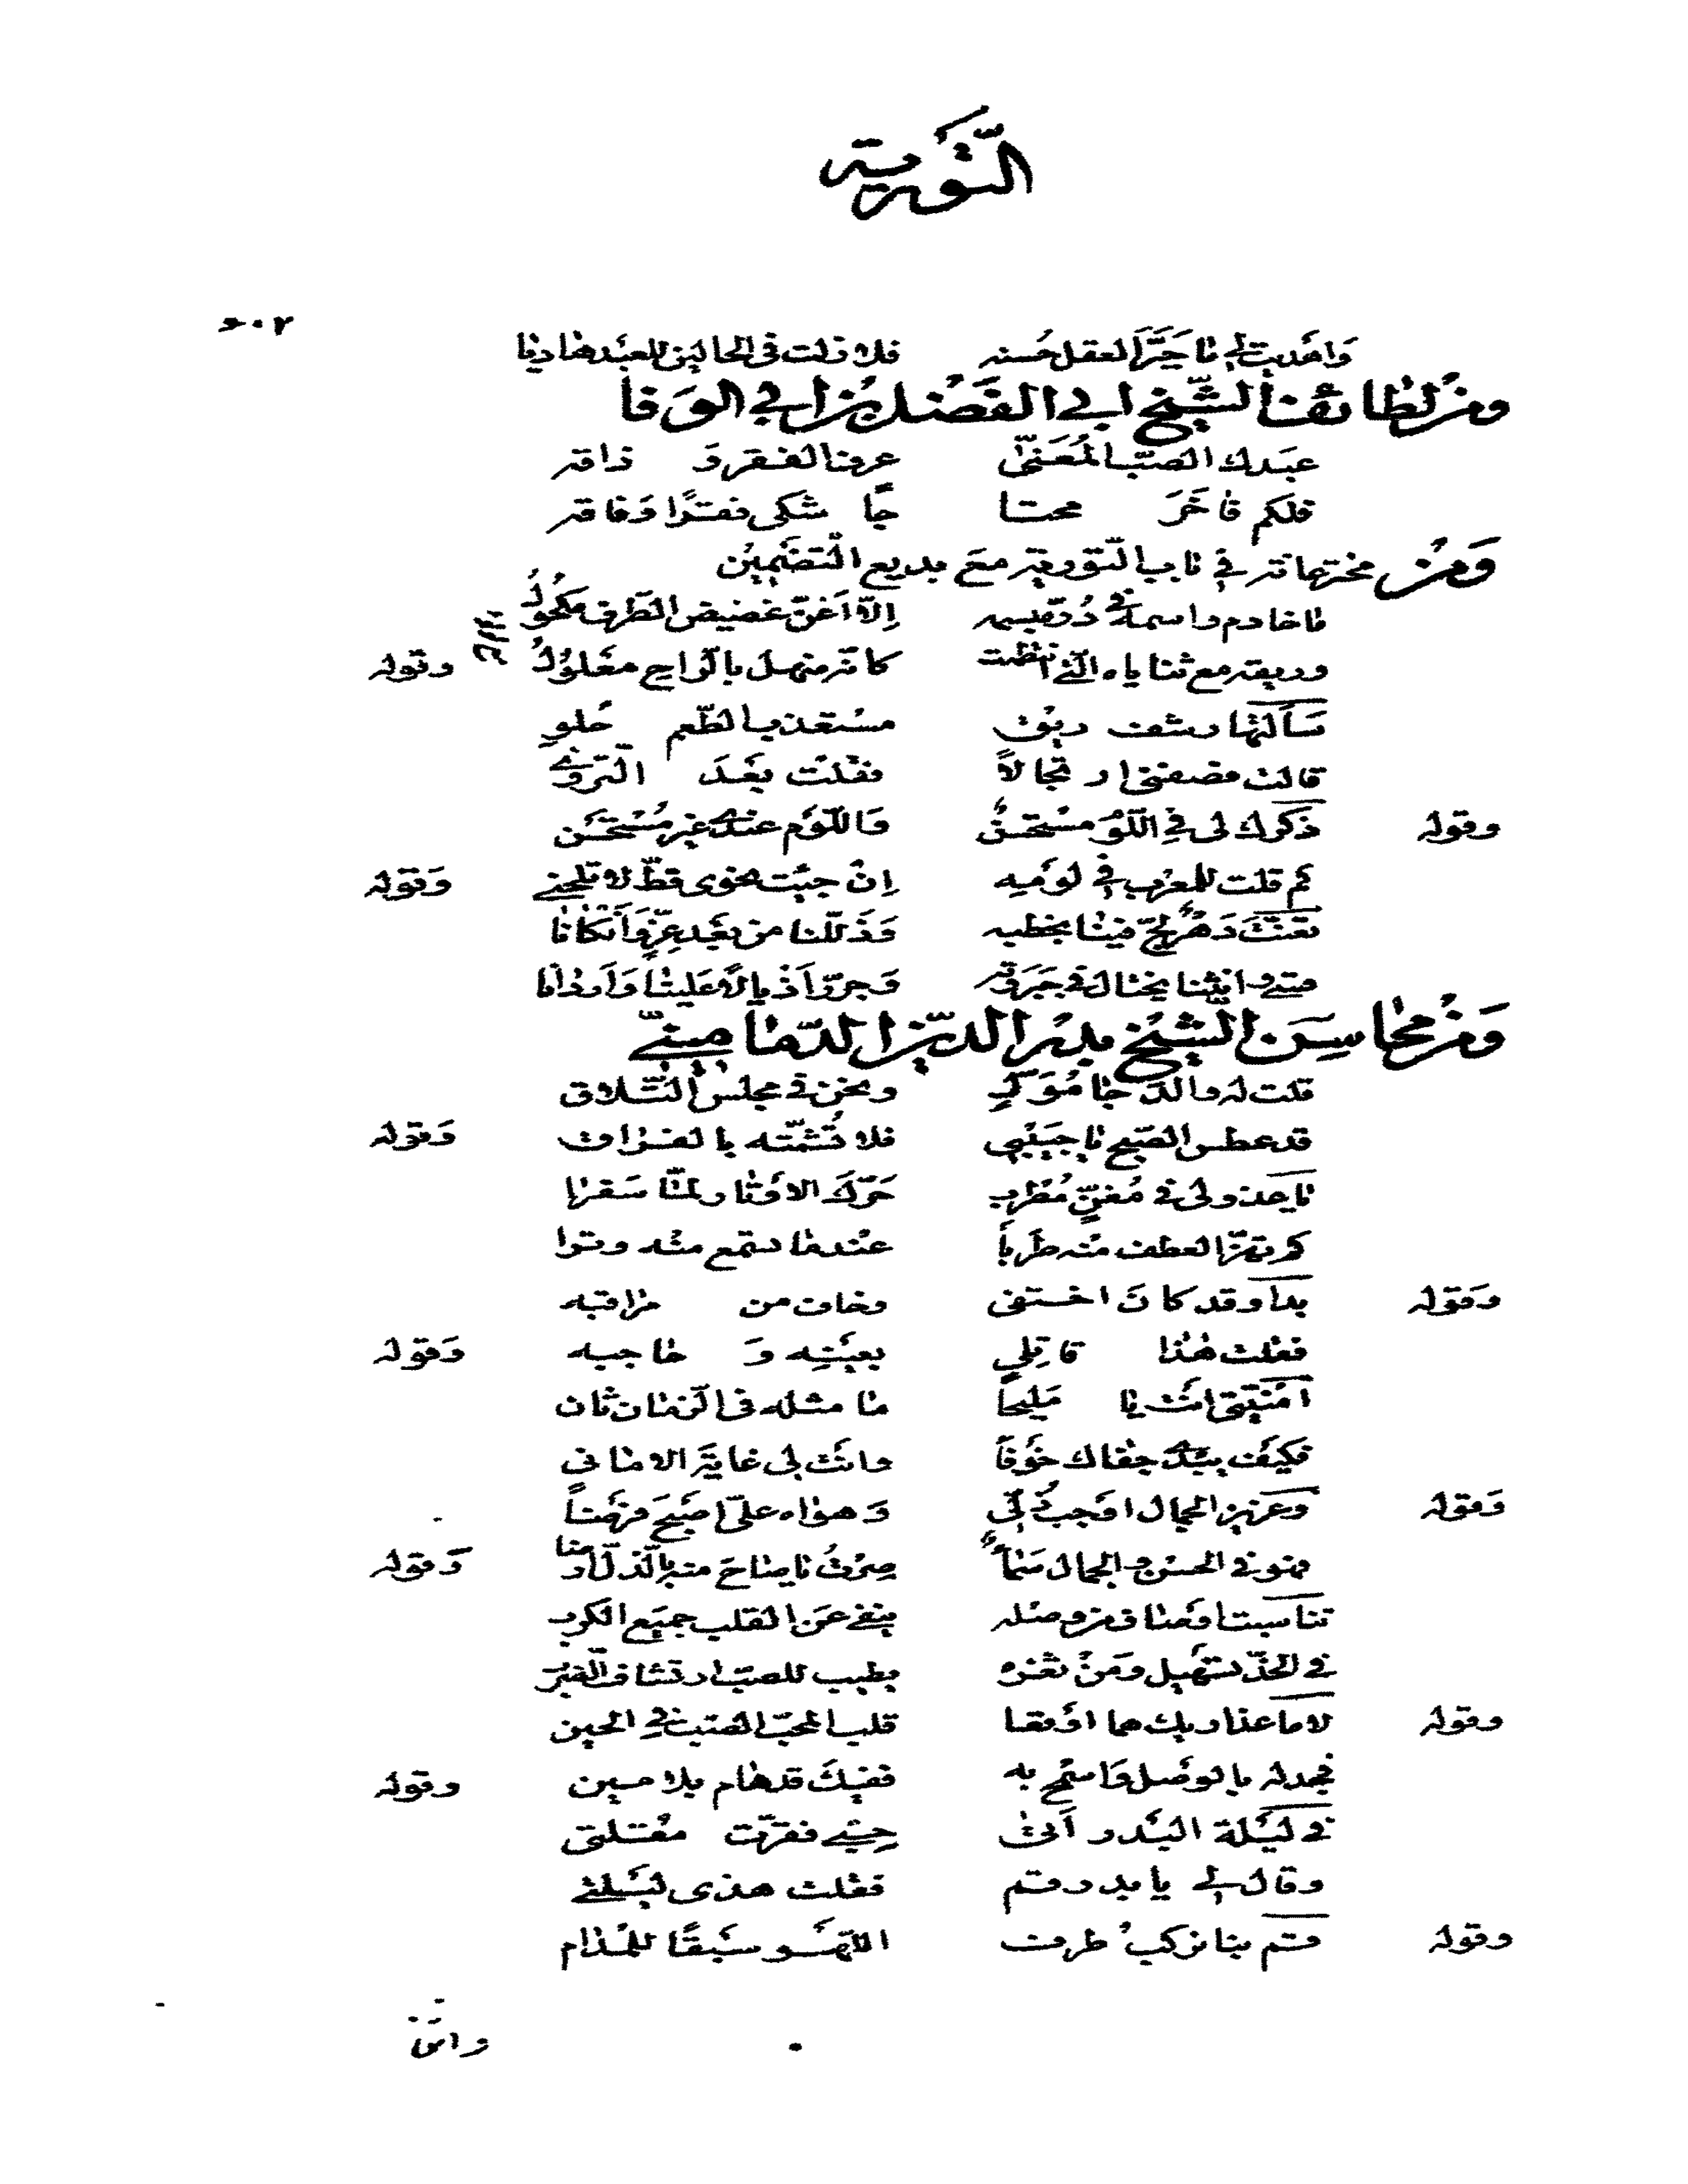 التَّوْرية
٢٠٥
وَاهْديت لي مَا حَيَّرَ العقل حُسنه فلا زلت في الحالين للعبْد هَاديَا
ومنْ لطائف الشّيْخ ابي الفَضْل بْن ابي الوَفَا
عبْدك الصّبّ المُعَنّىٰ عرف الفقر وَ ذاقه
فلكم فَاخَرَ محبّا جَا شكى فقرًا وَفاقه
وَمنْ مخترعاته في بَاب التّوْرية معَ بديع التّضْميْن
مَا خادم واسمه في دُرّ مبسمه إلّا اَغنّ غضيض الطّرف مكْحُوْلُ
وريقه مع ثناياه الّتي انتظمت كانّه منهل بالرّاح معْلوْلُ وقوله
سَاَلتُها رشف ريْق مسْتعذب الطّعم حُلوِ
قالت مضغني ارتجالاً فقلت بعْدَ التّروّي
وقوله ذكرك لي في اللّوْ مسْتحسنٌ وَاللّوْم عندي غير مُسْتحْسَن
كم قلت للمغرب في لوْمه إنْ جيْت نحوي قطّ لا تلحني وَقوله
تعنّتَ دَهْرٌ لجّ فيْنا بخطبه وَذَلّلنا من بعْد عِزٍّ وَأنكانَا
متى انثنا يختال في جَبَروته وَجرّ اَذيالًا عَليْنا وَاَردانا
وَمنْ محَاسِن الشّيْخ بدْر الدّيْن الدّمَامِيْنيّ
قلت له والدّجَا مُوَلٍّ ونحن في مجلس التّلاق
قد عطس الصّبح يَا حبيْبي فلا تُشمّته بالفراق وَقوله
يَا عذولي في مُغنٍّ مُطرب حَرّكَ الاوْتار لمّا سَفرا
كم تهزّ العطف منه طرباً عنْدما تسمع منْه وترا
وَقوله بدا وقد كانَ اختفى وخاف من مراقبه
فقلت هٰذا قاتلي بعيْنه وَ حَاجبه وَقوله
امُنيتي انت يا مَليحاً مَا مثله في الزّمان ثان
فكيْف يبْدي جفاك خوْفاً وانْت لي غايَة الاماني
وَقوله وعزيز الجمال اوْجب ذُلّي وَهواه عليّ اصْبحَ فرْضاً
فهو في الحسْن والجمال سَمآءٌ صِرْتُ يَا صَاحَ منه بالذّلّ ارضا وَقوله
تناسبت اوْصَاف من وصله ينفي عن القلب جميْع الكرب
في الخدّ تسهيل ومَنْ ثغْره يطيب للصبّ ارتشاف الضّرَب
وقوله لاما عذاريك هما اوْقعا قلب المحبّ الصّبّ في الحين
فجد له بالوصْل وَاسْمح به ففيْكَ قد هَام بلا مين وقوله
في ليْلة البْدر اَتىٰ حبّي فقرّت مقْلتي
وقال لي يا بدر قم فقلت هذي ليْلتي
وقوله قم بنا نركب طرف اللّهْو سبْقًا للمْدام
واثن